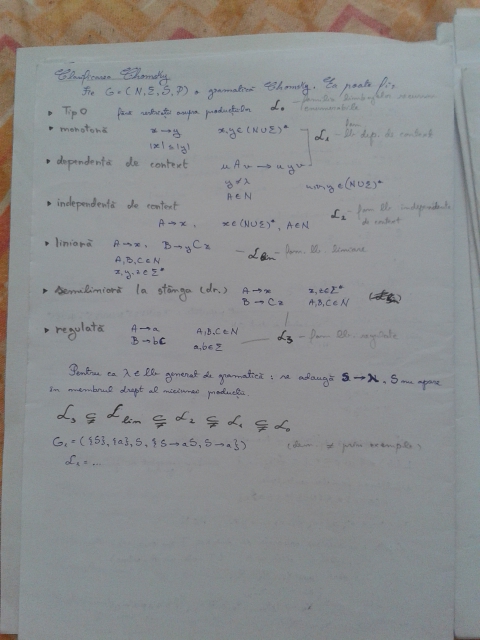 Clasificarea Chomsky
Fie G = (N, Σ, S, P) o gramatică Chomsky. Ea poate fi:
▸ Tip 0 fără restricții asupra producțiilor ℒ₀ - familia limbajelor recursiv enumerabile
▸ monotonă x → y x, y ∈ (N∪Σ)*
|x| ≤ |y| ℒ₁ - fam lb. dep. de context
▸ dependentă de context uAv → uyv
y ≠ λ u, v, y ∈ (N∪Σ)*
A ∈ N
▸ independentă de context ℒ₂ - fam lb independente de context
A → x, x ∈ (N∪Σ)*, A ∈ N
▸ liniară A → x, B → yCz - ℒlin - fam. lb. liniare
A, B, C ∈ N
x, y, z ∈ Σ*
▸ semiliniară la stânga (dr.) A → x x, z ∈ Σ*
B → Cz A, B, C ∈ N
▸ regulată A → a A, B, C ∈ N ℒ₃ - fam lb. regulate
B → bC a, b ∈ Σ
Pentru ca λ ∈ lb generat de gramatică: se adaugă S → λ, S nu apare
în membrul drept al niciunei producții
ℒ₃ ⊊ ℒlin ⊊ ℒ₂ ⊊ ℒ₁ ⊊ ℒ₀
G₁ = ({S}, {a}, S, {S → aS, S → a}) (dem. ≠ prin exemple)
ℒ₁ = ...